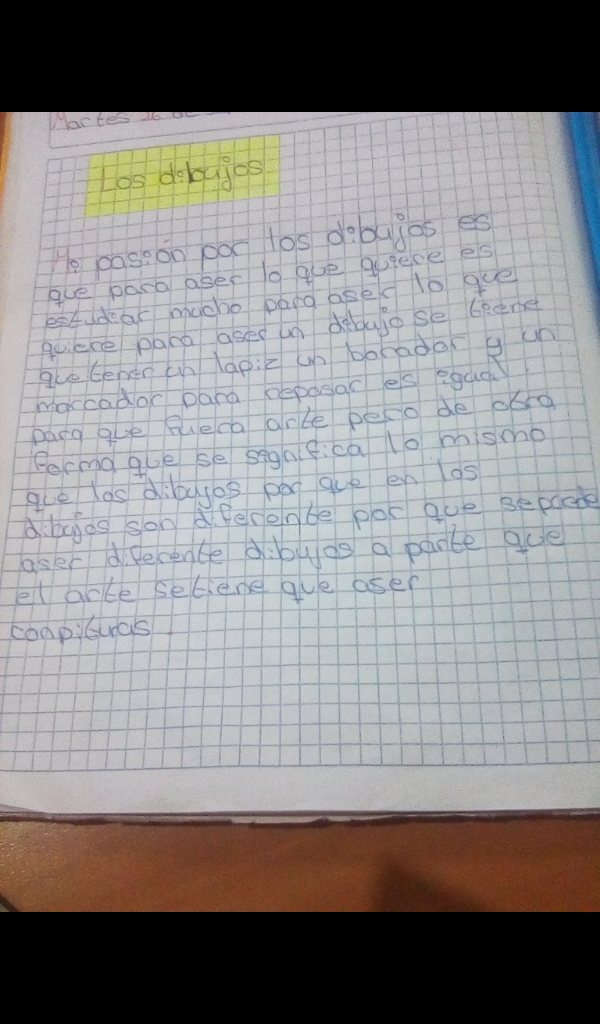 Martes 26 de
Los dibujos
Mi pasión por los dibujos es
que para aser lo que quiere es
estudiar mucho para aser lo que
quiere para aser un dibujo se tiene
que tener un lapiz un borador y un
marcador para reposar es igual
para que fuera arte pero de otra
forma que se significa lo mismo
que los dibujos por que en los
dibujos son diferente por que se parte
aser diferente dibujos a parte que
el arte setiene que aser
conpituras